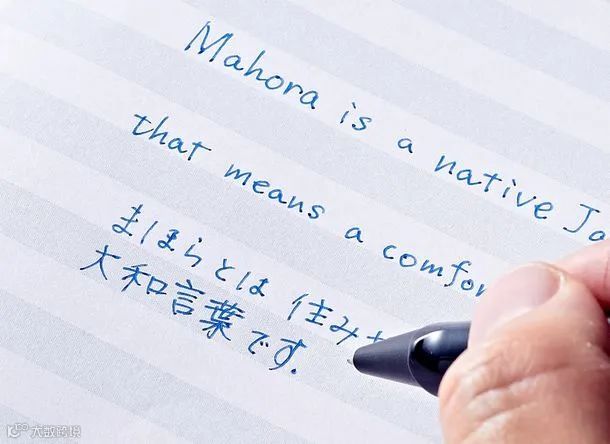 Mahora is a native Ja
that means a comfor
まほらとは 住み
大和言葉です.
大数跨境